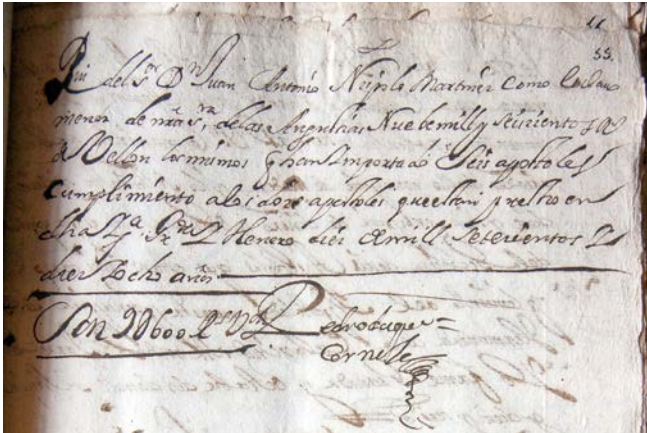 11
55.
Rvi del Sor Dn Juan Antonio Martinez Como
menor de nra Sra, de las Angustias Nuebe mill y seiscientos Rs
de Vellon los mismos q han Importado Seis apostoles
Cumplimiento a los doze apostoles que estan puestos en
dha Iga. Grda Y Henero diez de mill Setecientos Y
diez Y ocho anos
Son 9U600 Rs Vn Pedro duque
Cornejo